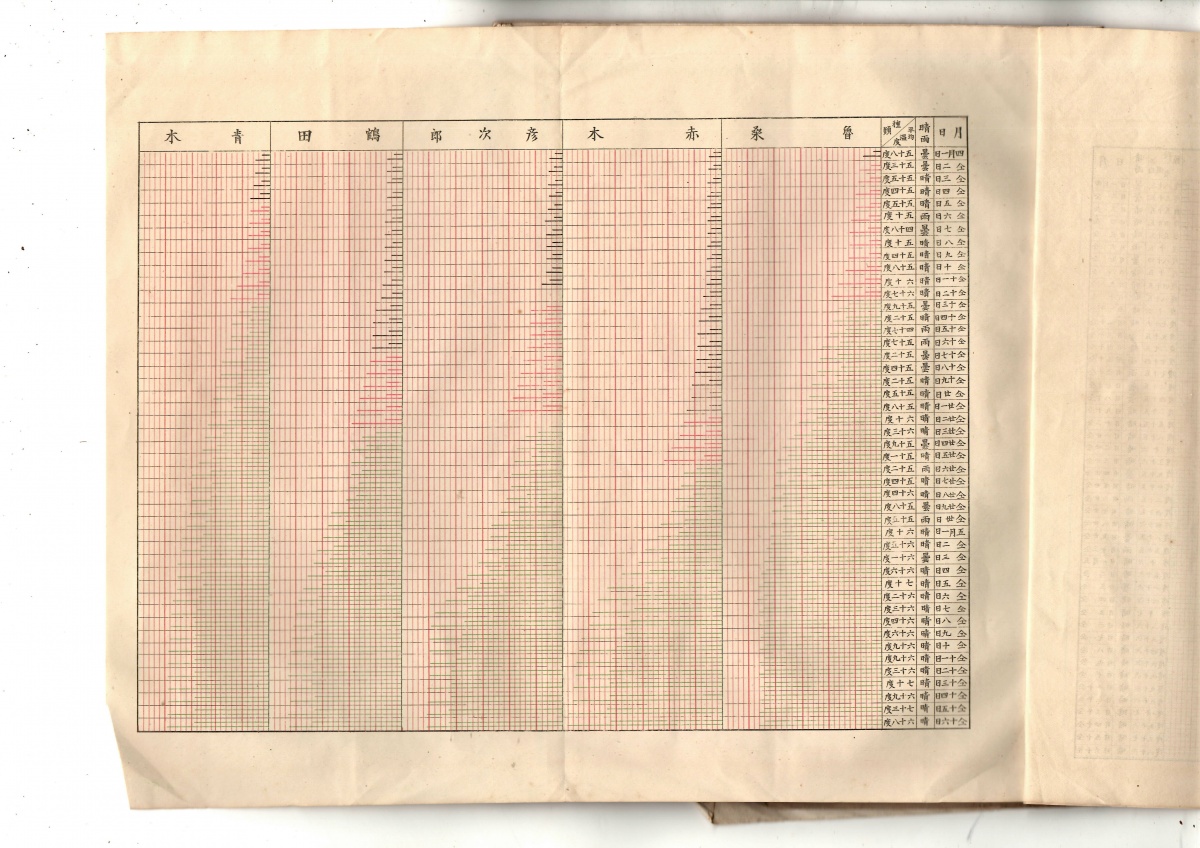 月日 晴雨 種類 平均温度 魯桑 赤木 彦次郎 鶴田 青木
四月一日 曇 五十八度
仝二日 曇 五十三度
仝三日 晴 五十五度
仝四日 晴 五十四度
仝五日 晴 五十五度
仝六日 雨 五十度
仝七日 曇 四十八度
仝八日 晴 五十度
仝九日 晴 五十四度
仝十日 晴 五十八度
仝十一日 晴 六十度
仝十二日 晴 六十七度
仝十三日 曇 五十九度
仝十四日 晴 五十二度
仝十五日 雨 四十七度
仝十六日 雨 五十七度
仝十七日 曇 五十二度
仝十八日 曇 五十四度
仝十九日 晴 五十二度
仝廿日 晴 五十五度
仝廿一日 晴 五十八度
仝廿二日 晴 六十度
仝廿三日 晴 六十三度
仝廿四日 曇 五十九度
仝廿五日 晴 五十一度
仝廿六日 雨 五十二度
仝廿七日 晴 五十四度
仝廿八日 晴 六十四度
仝廿九日 曇 五十八度
仝丗日 雨
五月一日 晴 六十度
仝二日 晴
仝三日 曇 六十一度
仝四日 晴 六十六度
仝五日 晴 七十度
仝六日 晴 六十二度
仝七日 晴 六十三度
仝八日 晴 六十四度
仝九日 晴 六十六度
仝十日 晴 六十九度
仝十一日 晴 六十九度
仝十二日 晴 六十三度
仝十三日 晴 七十度
仝十四日 晴 六十九度
仝十五日 晴 七十三度
仝十六日 晴 六十八度